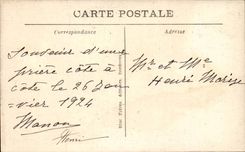 CARTE POSTALE
Correspondance
Adresse
Souvenir d'une
prière côte à
côte le 26 Jan
vier 1924
Manon
Henri
Mr et Me
Henri